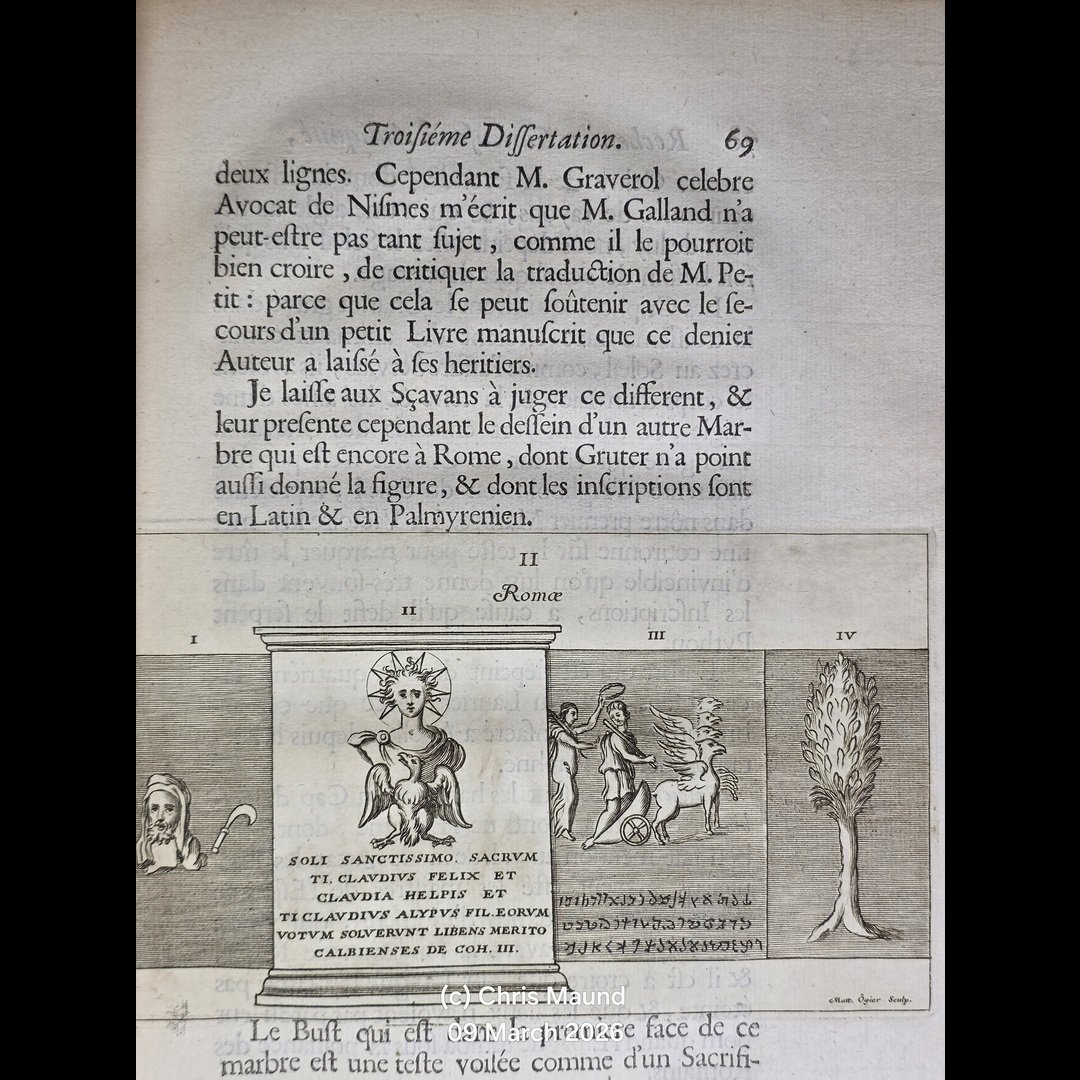 Troisiéme Dissertation. 69
deux lignes. Cependant M. Graverol celebre
Avocat de Nismes m'écrit que M. Galland n'a
peut-estre pas tant sujet, comme il le pourroit
bien croire, de critiquer la traduction de M. Pe-
tit: parce que cela se peut soûtenir avec le se-
cours d'un petit Livre manuscrit que ce denier
Auteur a laissé à ses heritiers.
Je laisse aux Sçavans à juger ce different, &
leur presente cependant le dessein d'un autre Mar-
bre qui est encore à Rome, dont Gruter n'a point
aussi donné la figure, & dont les inscriptions sont
en Latin & en Palmyrenien.
II
Romæ
I II III IV
SOLI SANCTISSIMO. SACRVM
TI. CLAVDIVS FELIX ET
CLAVDIA HELPIS ET
TI CLAVDIVS ALYPVS FIL. EORVM
VOTVM SOLVERVNT LIBENS MERITO
CALBIENSES DE COH. III.
Matt. Ogier Sculp.
(c) Chris Maund
09 March 2025
Le Bust qui est dans la premiere face de ce
marbre est une teste voilée comme d'un Sacrifi-